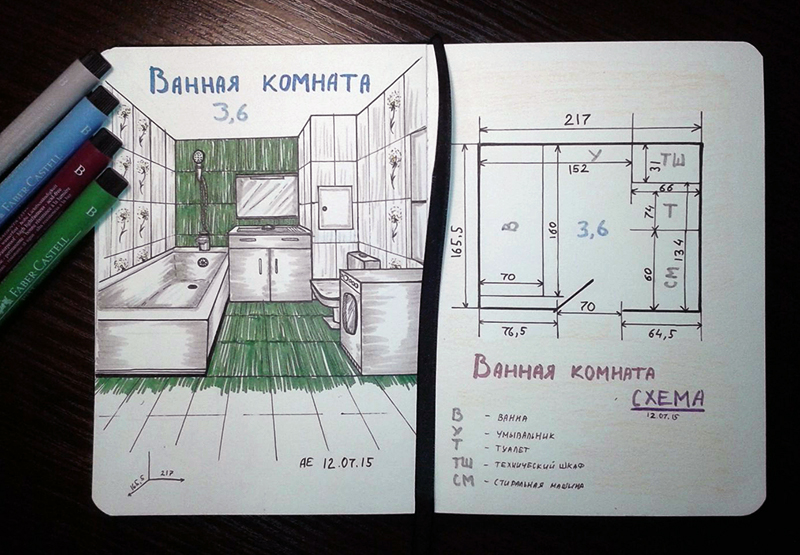 Ванная комната
3,6
165,5
217
АЕ 12.07.15
FABER-CASTELL
B
FABER-CASTELL
B
FABER CASTELL
B
217
У
152
31
ТШ
66
165,5
В
160
3,6
74
Т
134
60
СМ
70
70
76,5
64,5
Ванная комната
СХЕМА
12.07.15
В - ВАННА
У - УМЫВАЛЬНИК
Т - ТУАЛЕТ
ТШ - ТЕХНИЧЕСКИЙ ШКАФ
СМ - СТИРАЛЬНАЯ МАШИНА